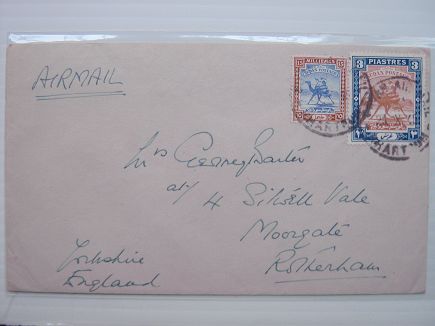 AIRMAIL
15 MILLIEMES 15
SUDAN POSTAGE
3 PIASTRES 3
SUDAN POSTAGE
Mrs George Baxter
at/ 4 Silwell Vale
Moorgate
Rotherham
Yorkshire
England